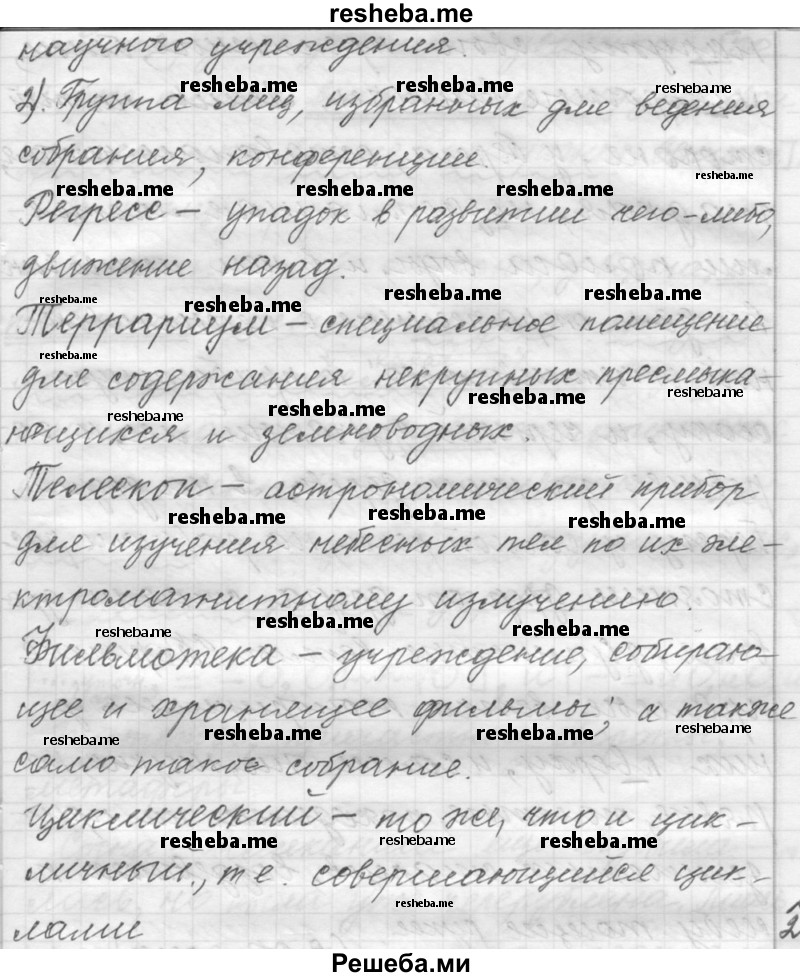 resheba.me
научного учреждения.
resheba.me resheba.me resheba.me
2). Группа лиц, избранных для ведения
собрания, конференции.
resheba.me resheba.me resheba.me resheba.me
Регресс – упадок в развитии чего-либо,
движение назад.
resheba.me resheba.me resheba.me resheba.me
Террариум – специальное помещение
resheba.me
для содержания некрупных пресмыка-
resheba.me resheba.me resheba.me resheba.me
ющихся и земноводных.
Телескоп – астрономический прибор
resheba.me resheba.me resheba.me
для изучения небесных тел по их эле-
ктромагнитному излучению.
resheba.me resheba.me resheba.me
Фильмотека – учреждение, собираю-
щее и хранящее фильмы; а также
resheba.me resheba.me resheba.me resheba.me
само такое собрание.
Циклический – то же, что и цик-
resheba.me resheba.me resheba.me
личный, т е. совершающийся цик-
resheba.me
лами
2
Решеба.ми